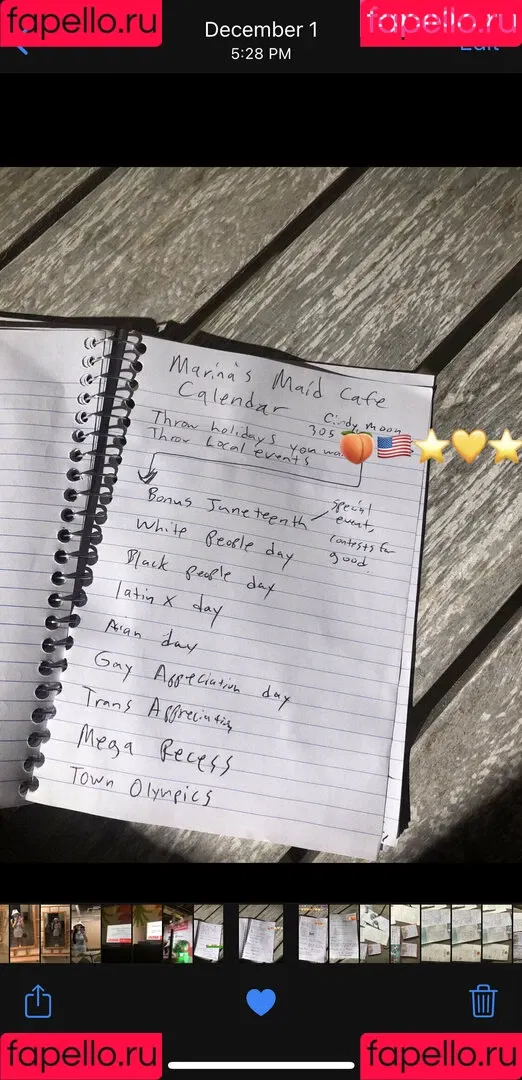 fapello.ru
fapello.ru
December 1
5:28 PM
Edit
Marina's Maid Cafe
Calendar
Cindy Moon
305
Throw holidays you
Throw Local events
Bonus Juneteenth
special
event,
contests for
good
White People day
Black people day
latin x day
Asian day
Gay Appreciation day
Trans Appreciation
Mega Recess
Town Olympics
fapello.ru
fapello.ru